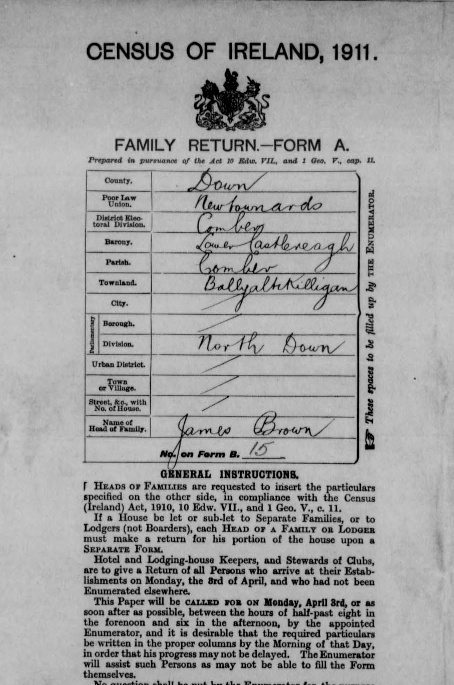 CENSUS OF IRELAND, 1911.
FAMILY RETURN.—FORM A.
Prepared in pursuance of the Act 10 Edw. VII., and 1 Geo. V., cap. 11.
County. Down
Poor Law Union. Newtownards
District Electoral Division. Comber
Barony. Lower Castlereagh
Parish. Comber
Townland. Ballyaltikilligan
City.
Parliamentary
Borough.
Division. North Down
Urban District.
Town or Village.
Street, &c., with No. of House.
Name of Head of Family. James Brown
No. on Form B. 15
These spaces to be filled up by THE ENUMERATOR.
GENERAL INSTRUCTIONS.
HEADS OF FAMILIES are requested to insert the particulars
specified on the other side, in compliance with the Census
(Ireland) Act, 1910, 10 Edw. VII., and 1 Geo. V., c. 11.
If a House be let or sub-let to Separate Families, or to
Lodgers (not Boarders), each HEAD OF A FAMILY OR LODGER
must make a return for his portion of the house upon a
SEPARATE FORM.
Hotel and Lodging-house Keepers, and Stewards of Clubs,
are to give a Return of all Persons who arrive at their Estab-
lishments on Monday, the 3rd of April, and who had not been
Enumerated elsewhere.
This Paper will be CALLED FOR ON Monday, April 3rd, or as
soon after as possible, between the hours of half-past eight in
the forenoon and six in the afternoon, by the appointed
Enumerator, and it is desirable that the required particulars
be written in the proper columns by the Morning of that Day,
in order that his progress may not be delayed. The Enumerator
will assist such Persons as may not be able to fill the Form
themselves.
No question shall be put by the Enumerator for the purpose